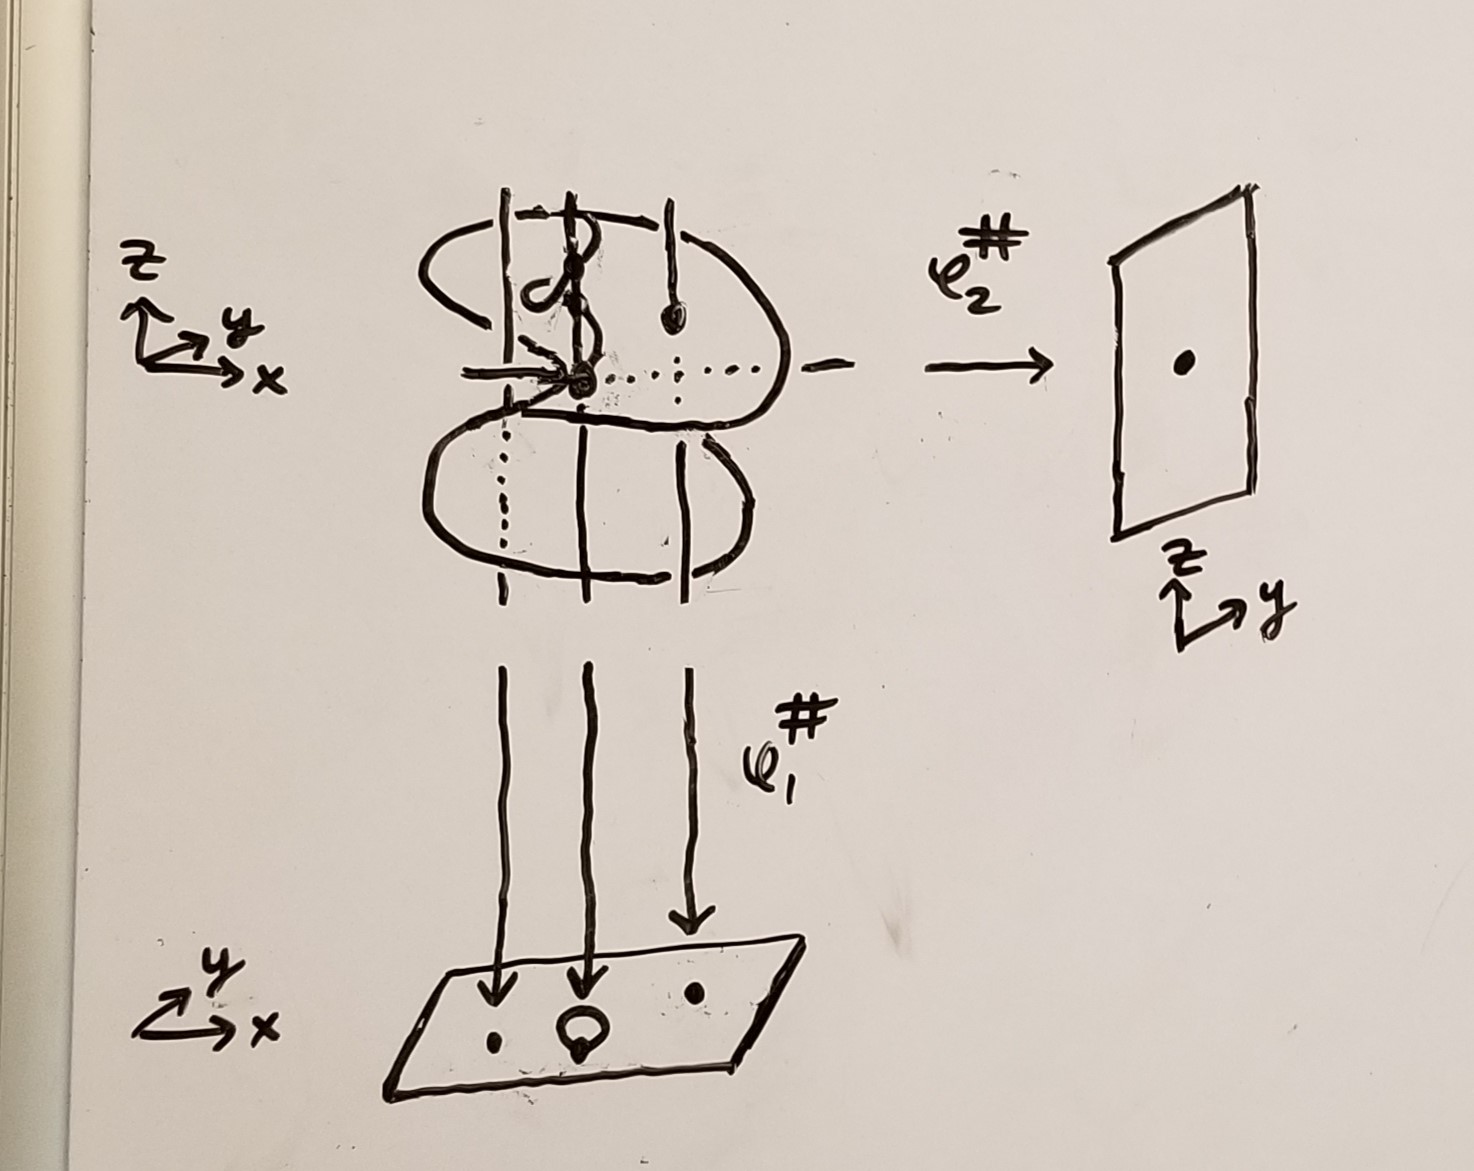 z
y
x
φ₂#
z
y
φ₁#
y
x